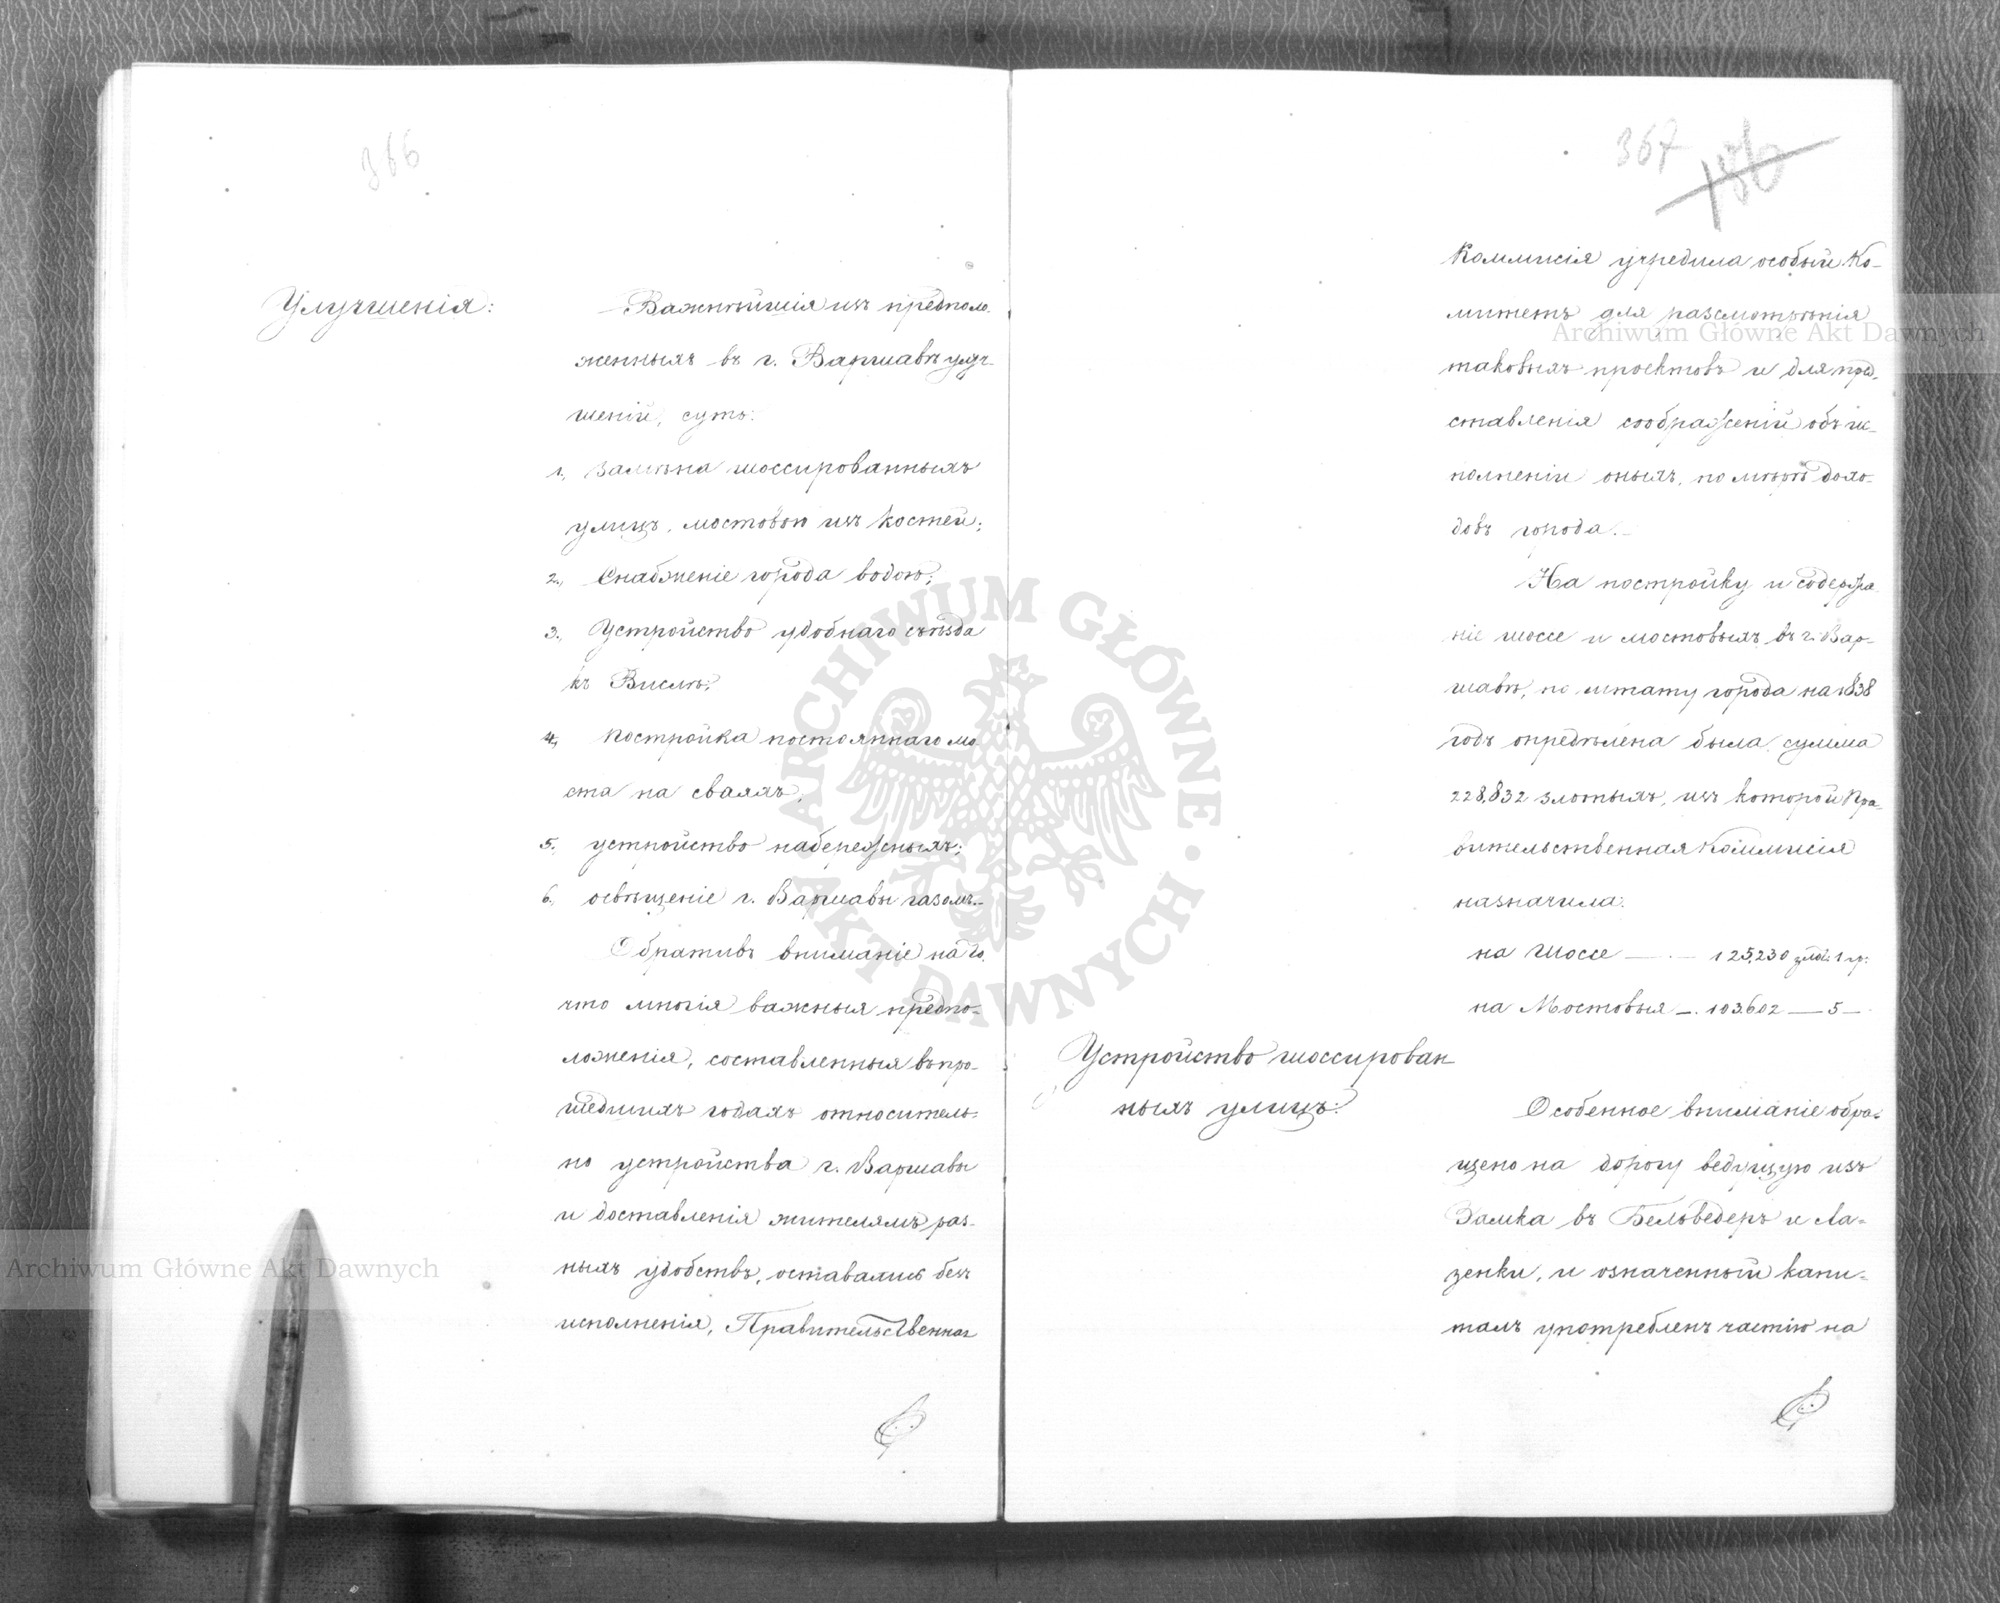 366
Улучшенія:
Важнѣйшія изъ предполо-
женныхъ въ г. Варшавѣ улуч-
шеній, суть:
1., Замѣна шоссированныхъ
улицъ, мостовою изъ костей;
2., Снабженіе города водою;
3., Устройство удобнаго съѣзда
къ Вислѣ;
4., Постройка постояннаго мо
ста на сваяхъ;
5., устройство набережныхъ;
6., освѣщеніе г. Варшавы газомъ.
Обративъ вниманіе на то,
что многія важныя предпо-
ложенія, составленныя въ про-
шедшихъ годахъ относитель-
но устройства г. Варшавы
и доставленія жителямъ раз-
ныхъ удобствъ, оставались безъ
исполненія, Правительственная
367
186
Коммисія учредила особый Ко-
митетъ для разсмотрѣнія
таковыхъ проектовъ и для пред-
ставленія соображеній объ ис-
полненіи оныхъ, по мѣрѣ дохо-
довъ города.
На постройку и содержа
ніе шоссе и мостовыхъ въ г. Вар-
шавѣ, по штату города на 1838
годъ опредѣлена была сумма
228,832 злотыхъ, изъ которой Пра-
вительственная Коммисія
назначила:
на Шоссе — 125,230 злот: 1 гр:
на Мостовыя — 103,602 — 5 —
Устройство шоссирован
ныхъ улицъ:
Особенное вниманіе обра-
щено на дорогу ведущую изъ
Замка въ Бельведеръ и Ла-
зенки, и означенный капи-
талъ употребленъ частію на
Archiwum Główne Akt Dawnych
Archiwum Główne Akt Dawnych
ARCHIWUM GŁÓWNE AKT DAWNYCH